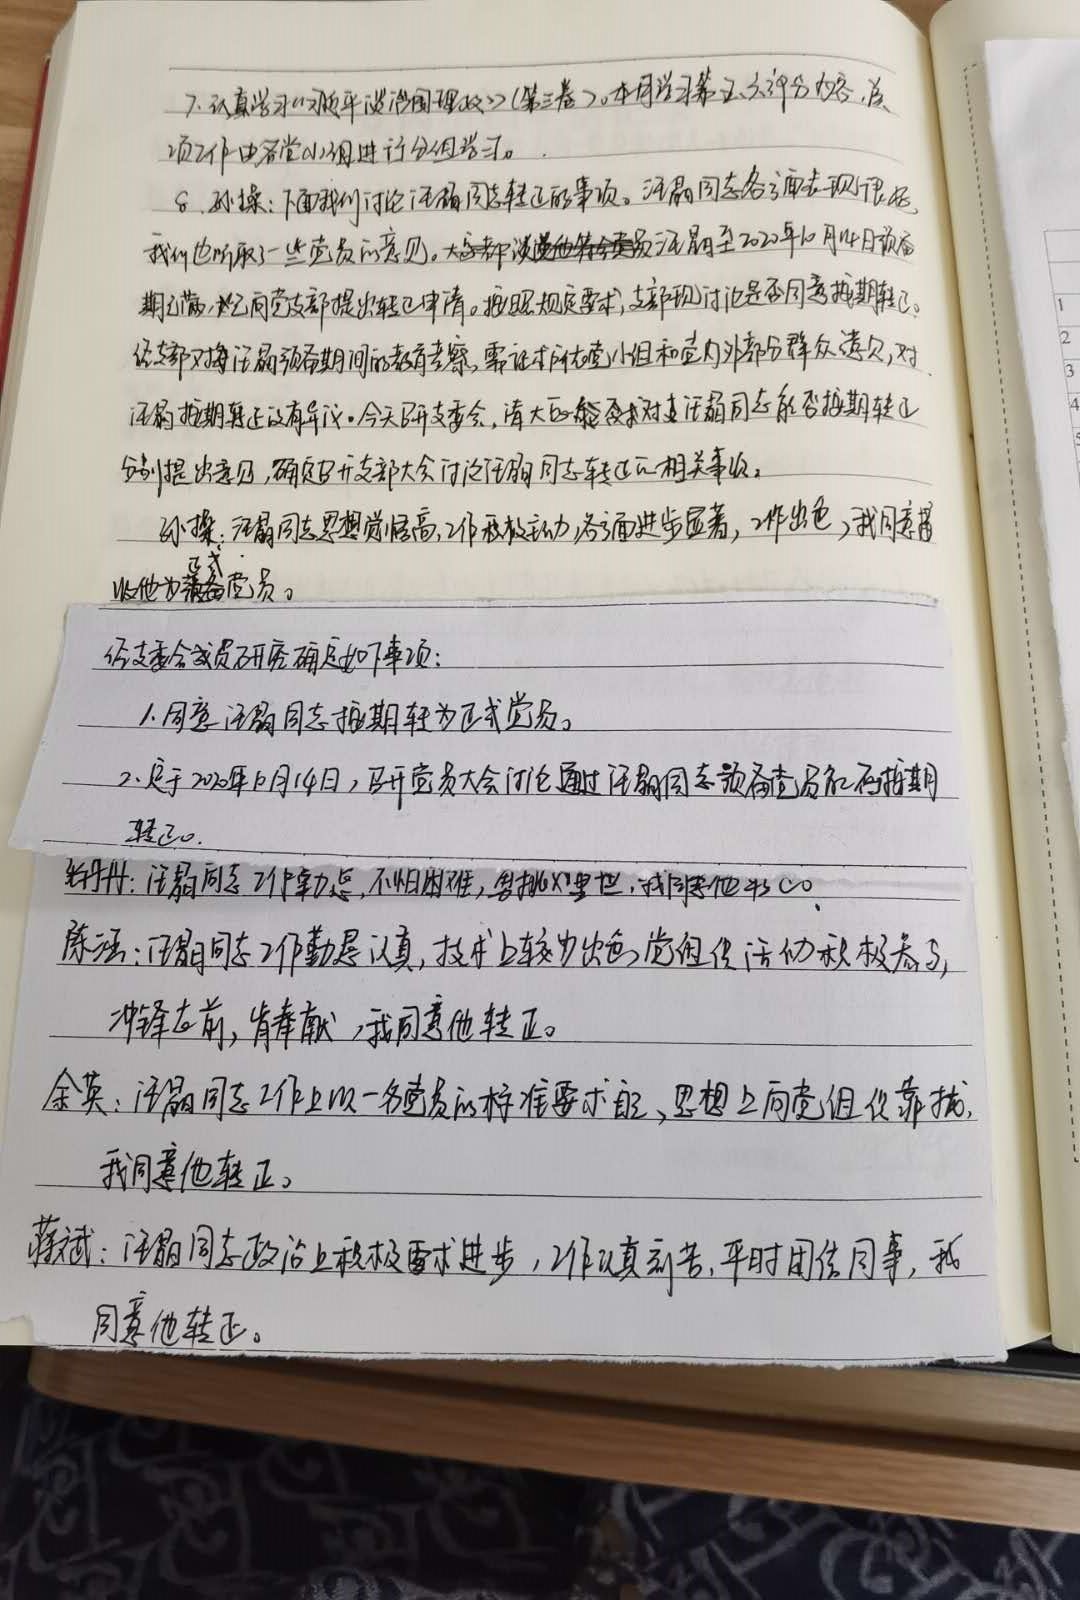 7. 认真学习《习近平谈治国理政》(第三卷)。本月学习第五、六部分内容,该
项工作由各党小组进行分组学习。
8. 孙操:下面我们讨论汪翮同志转正的事项。汪翮同志各方面表现很好,
我们也听取了一些党员的意见。汪翮至2020年10月14日预备
期已满,已向党支部提出转正申请。按照规定要求,支部现讨论是否同意按期转正。
经支部对汪翮预备期间的教育考察,党小组和党内外部分群众意见,对
汪翮按期转正没有异议。今天召开支委会,请大家对汪翮同志能否按期转正
分别提出意见,确定召开支部大会讨论汪翮同志转正的相关事项。
孙操:汪翮同志思想觉悟高,工作积极主动,各方面进步显著,工作出色,我同意
收他为正式党员。
经支委会成员研究确定如下事项:
1. 同意汪翮同志按期转为正式党员。
2. 定于2020年10月14日,召开党员大会讨论通过汪翮同志预备党员能否按期
转正。
汪翮同志工作勤恳,不怕困难,我同意他
陈涵:汪翮同志工作勤恳认真,技术上较为出色,党组织活动积极参与,
冲锋在前,肯奉献,我同意他转正。
余英:汪翮同志工作上以一名党员的标准要求自己,思想上向党组织靠拢,
我同意他转正。
蒋斌:汪翮同志政治上积极要求进步,工作认真刻苦,平时团结同事,我
同意他转正。
1
2
3
4